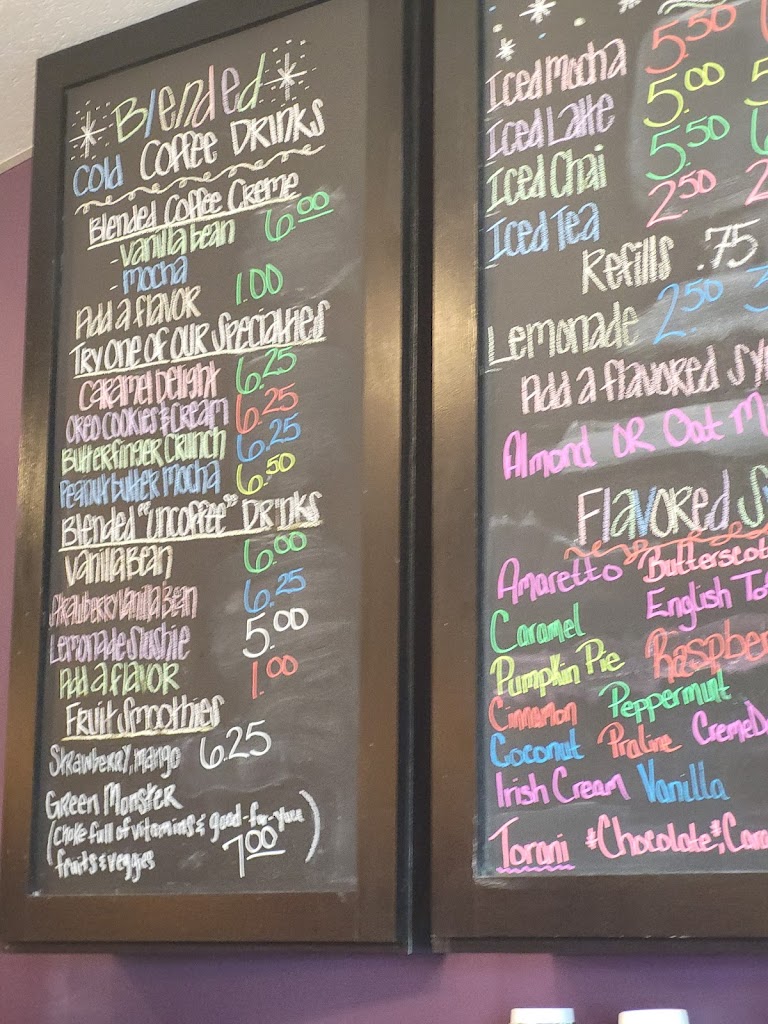 Blended
Cold Coffee Drinks
Blended Coffee Creme
- Vanilla bean 6.00
- mocha
Add a flavor 1.00
Try One of Our Specialties
Caramel Delight 6.25
Oreo Cookies & Cream 6.25
Butterfinger Crunch 6.25
Peanut butter Mocha 6.50
Blended "Uncoffee" Drinks
Vanilla Bean 6.00
Strawberry Vanilla Bean 6.25
Lemonade Slushie 5.00
Add a flavor 1.00
Fruit Smoothies
Strawberry, mango 6.25
Green Monster
(Choke full of vitamins & good-for-you
fruits & veggies) 7.00
Iced Mocha 5.50
Iced Latte 5.00
Iced Chai 5.50
Iced Tea 2.50
Refills .75
Lemonade 2.50
Add a flavored
Almond OR Oat
Flavored
Amaretto
Caramel English
Pumpkin Pie
Cinnamon Peppermint
Coconut Praline
Irish Cream Vanilla
Torani *Chocolate*,